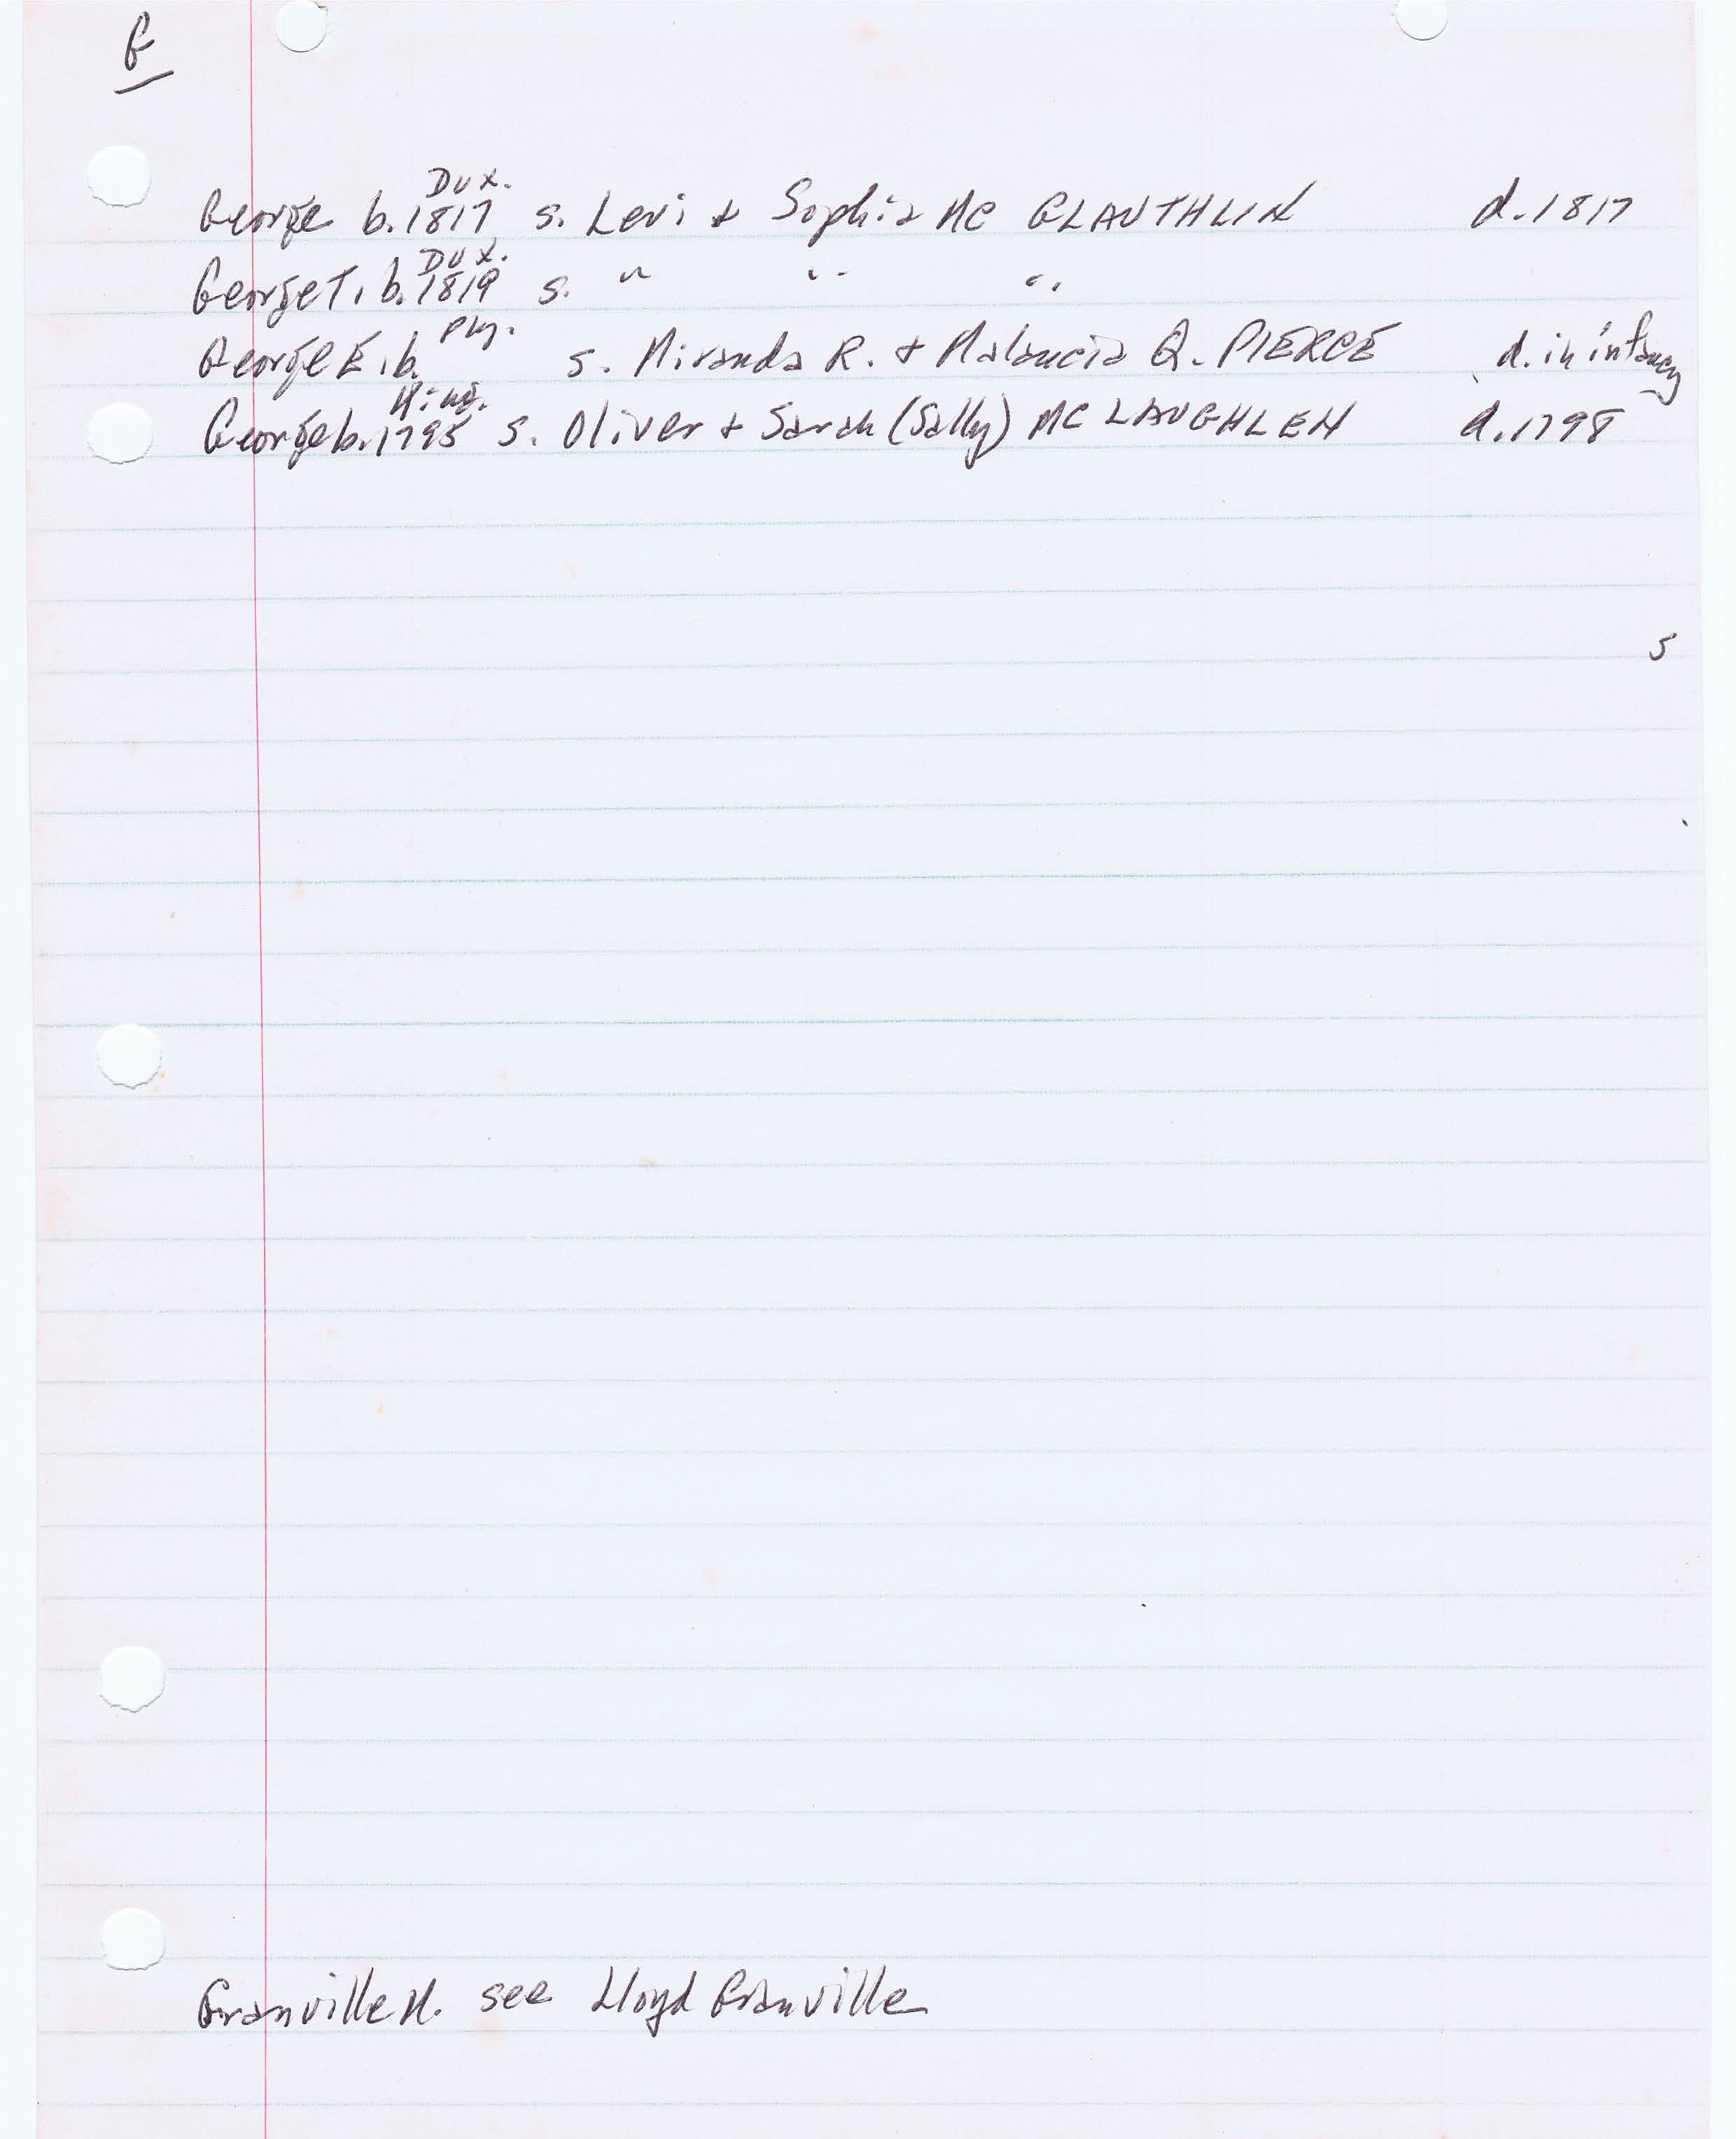 G
Dux.
George b. 1817 s. Levi + Sophia MC GLAUTHLIN d. 1817
Dux.
George T. b. 1819 s. " " "
Ply.
George E. b. s. Miranda R. + Malancia Q. PIERCE d. in infancy
Hing.
George b. 1795 s. Oliver + Sarah (Sally) MC LAUGHLEN d. 1798
5
Granville H. see Lloyd Granville